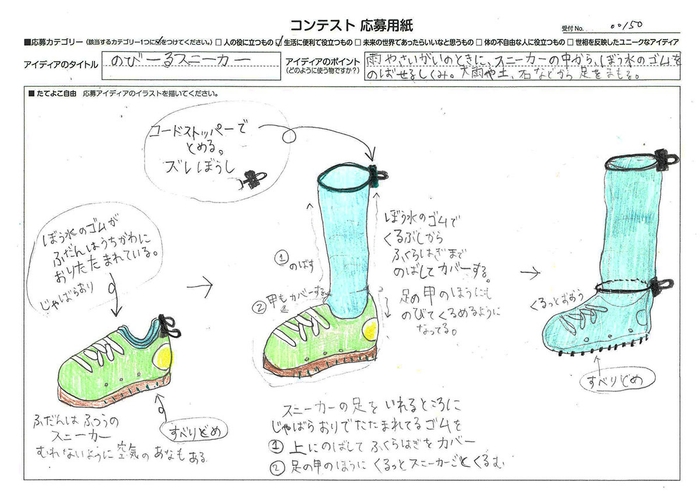 コンテスト 応募用紙
受付No. 00150
■応募カテゴリー（該当するカテゴリー1つに☑をつけてください。） □ 人の役に立つもの ☑ 生活に便利で役立つもの □ 未来の世界であったらいいなと思うもの □ 体の不自由な人に役立つもの □ 世相を反映したユニークなアイディア
アイディアのタイトル
のびーるスニーカー
アイディアのポイント
（どのように使う物ですか？）
雨やさいがいのときに、スニーカーの中から、ぼう水のゴムを
のばせるしくみ。大雨や土、石などから足をまもる。
■ たてよこ自由 応募アイディアのイラストを描いてください。
コードストッパーで
とめる。
ズレぼうし
ぼう水のゴムが
ふだんはうちがわに
おりたたまれている。
じゃばらおり
① のばす
② 甲もカバーする
ぼう水のゴムで
くるぶしから
ふくらはぎまで
のばしてカバーする。
足の甲のほうにも
のびてくるめるように
なってる。
くるっとおおう
すべりどめ
すべりどめ
ふだんはふつうの
スニーカー
むれないように空気のあなもある
スニーカーの足をいれるところに
じゃばらおりでたたまれてるゴムを
① 上にのばしてふくらはぎをカバー
② 足の甲のほうにくるっとスニーカーごとくるむ